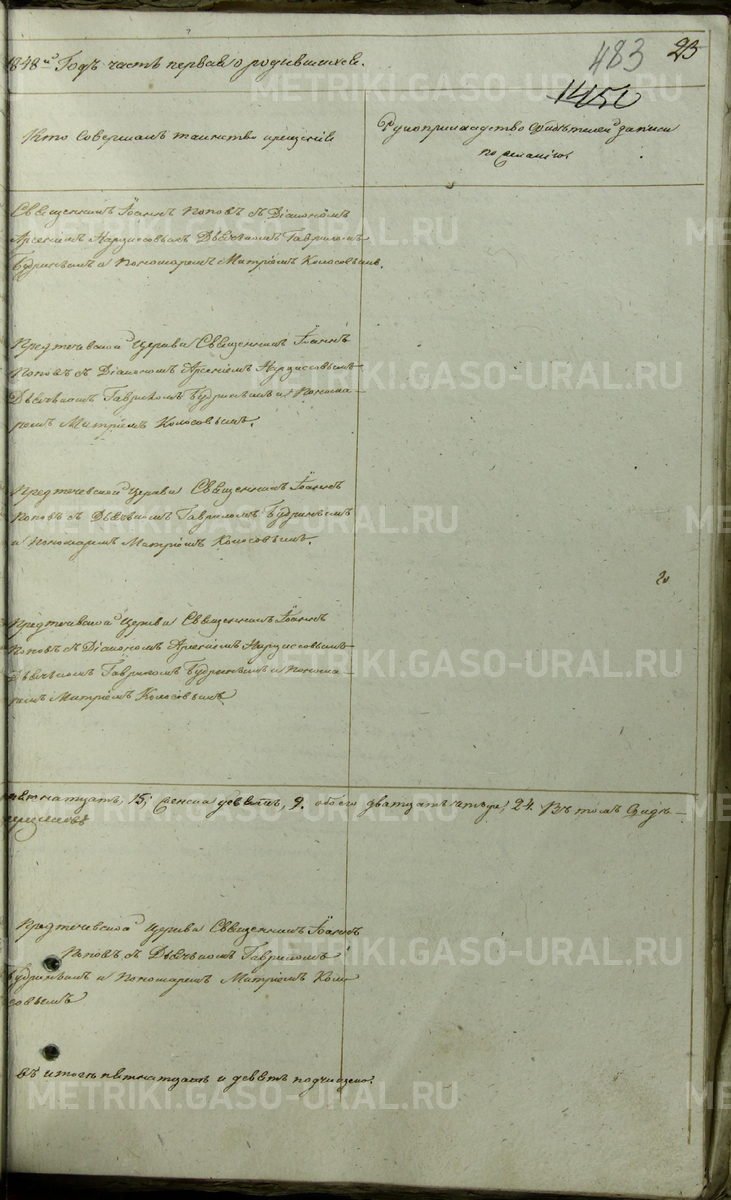 483 23
1848й Годъ часть первая о родившихся.
1450
Кто совершалъ таинство крещенія
Рукоприкладство свидѣтелей записи
по желанію
Священникъ Іоаннъ Поповъ съ Діакономъ
Арсеніемъ Нарциссовымъ Дьячкомъ Гавриломъ
Будринымъ и Пономаремъ Митріемъ Колосовымъ.
METRIKI.GASO-URAL.RU
Предтечевской Церкви Священникъ Іоаннъ
Поповъ съ Діакономъ Арсеніемъ Нарциссовымъ
Дьячкомъ Гавриломъ Будринымъ и Понома-
ремъ Митріемъ Колосовымъ.
METRIKI.GASO-URAL.RU
Предтечевской Церкви Священникъ Іоаннъ
Поповъ съ Дьячкомъ Гавриломъ Будринымъ
и Пономаремъ Митріемъ Колосовымъ.
METRIKI.GASO-URAL.RU
Предтечевской Церкви Священникъ Іоаннъ
Поповъ съ Діакономъ Арсеніемъ Нарциссовымъ
Дьячкомъ Гавриломъ Будринымъ и Понома-
ремъ Митріемъ Колосовымъ
METRIKI.GASO-URAL.RU
15; женска девять, 9. обоего дватцать четыре, 24. Въ томъ
METRIKI.GASO-URAL.RU
Предтечевской Церкви Священникъ Іоаннъ
Поповъ съ Дьячкомъ Гавриломъ
Будринымъ и Пономаремъ Митріемъ Коло-
совымъ
METRIKI.GASO-URAL.RU
въ итогѣ пятнатцать и девять подчищено.
METRIKI.GASO-URAL.RU